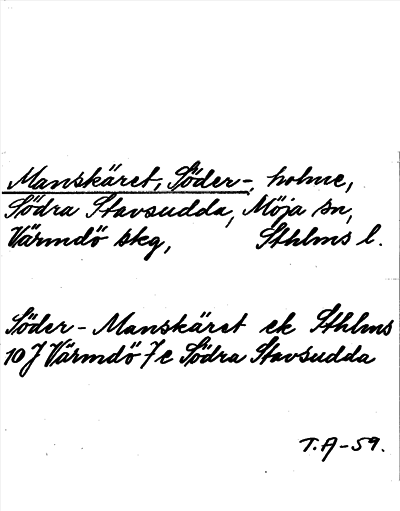 Manskäret, Söder-, holme,
Södra Stavsudda, Möja sn,
Värmdö skg, Sthlms l.
Söder-Manskäret ek Sthlms
10 J Värmdö 7 e Södra Stavsudda
T.A-59.